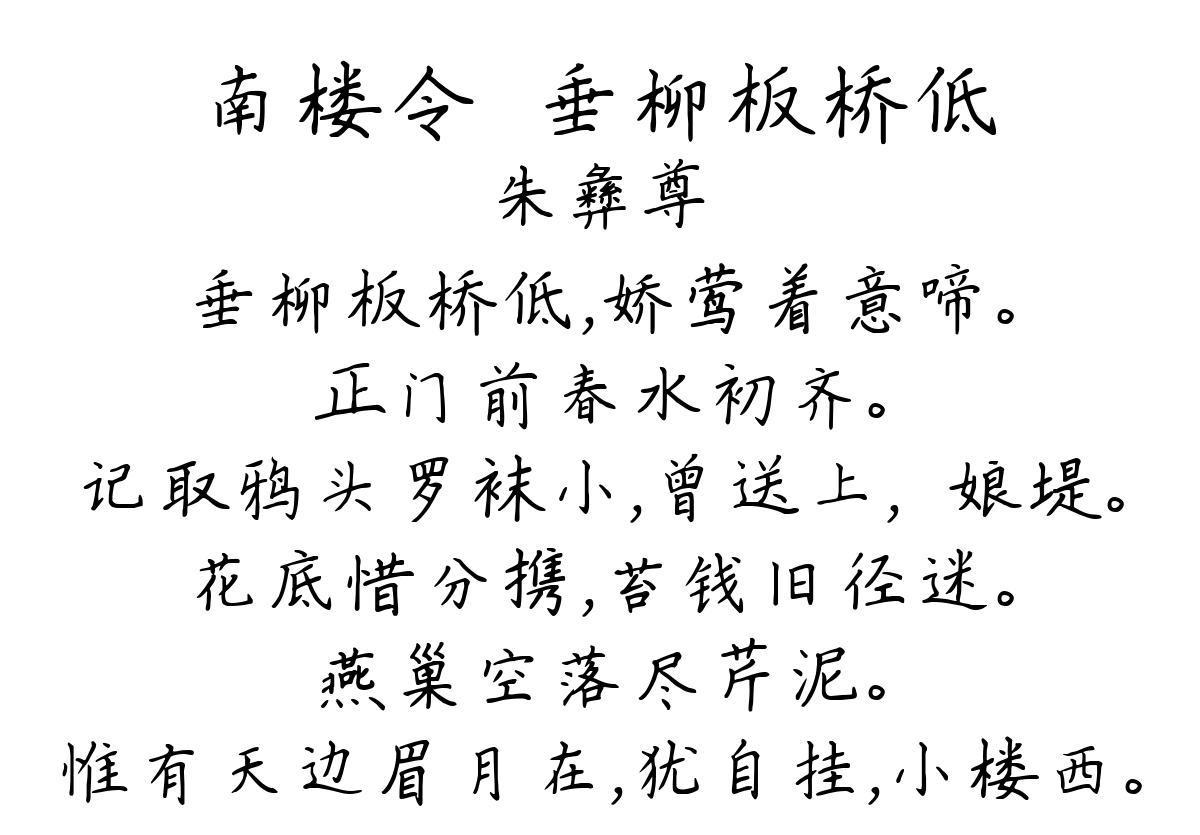 南楼令 垂柳板桥低
朱彝尊
垂柳板桥低,娇莺着意啼。
正门前春水初齐。
记取鸦头罗袜小,曾送上，娘堤。
花底惜分携,苔钱旧径迷。
燕巢空落尽芹泥。
惟有天边眉月在,犹自挂,小楼西。